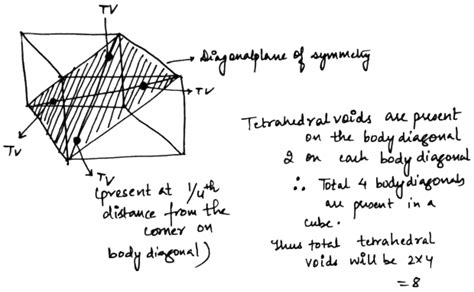 TV
Diagonal plane of symmetry
TV
TV
TV
(present at 1/4th
distance from the
corner on
body diagonal)
Tetrahedral voids are present
on the body diagonal
2 on each body diagonal
∴ Total 4 body diagonals
are present in a
cube.
Thus total tetrahedral
voids will be 2x4
=8